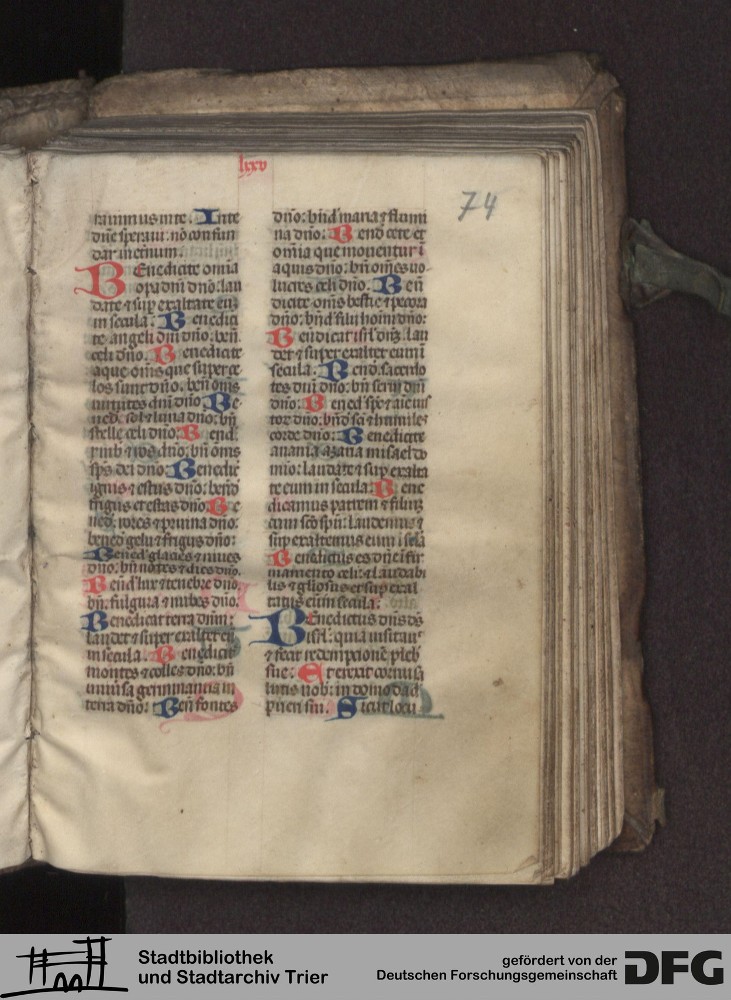 lxxv
74
ramur in te. In te
dne speraui. nō confun
dar in eternum.
Benedicite omia
opa dni dno: lau
date & sup exaltate eū
in secula. Benedici
te angeli dni dno. ben
celi dno. Benedicite
aque oms que super ce
los sunt dno. ben oms
uirtutes dni dno. Be
ned. sol & luna dno. bn
stelle celi dno. Bened
ymb & ros dno. bn oms
sps dei dno. Benedic
ignis & estus dno. bened
frigus et estas dno. Be
ned. rores & pruina dno.
bened gelu & frigus dno:
Bened glacies & niues
dno. bn noctes & dies dno.
Bened lux & tenebre dno.
bn. fulgura & nubes dno.
Benedicat terra dnm:
laudet & super exaltet eū
in secula. Benedicite
montes & colles dno. bn
uniūsa germinancia in
terra dno: Ben fontes
dno: bnd maria & flumi
na dno. Bened cete et
omia que mouentur ī
aquis dno: bn oms uo
lucres celi dno. Ben
dicite oms bestie & pecora
dno: bnd filii hoim dno:
Benedicat isrl dnm. lau
det & super exaltet eum ī
secula. Bend. sacerdo
tes dni dno: bn serui dni
dno: Bened sps & aie ius
tor dno: bnd sci & humiles
corde dno: Benedicite
anania azaria misael do
mino: laudate & sup exalta
te eum in secula. Bene
dicamus patrem & filiū
cum sco spu: laudemus &
sup exaltemus eum ī secla
Benedictus es dne ī fir
mamento celi: & laudabi
lis & gliosus et sup exal
tatus eum secula:
Benedictus dns ds
isrl: quia uisitau
& fecit redempcionē pleb
sue: Et erexit cornu sa
lutis nob: in domo dad
pueri sui. Sicut locu
Stadtbibliothek
und Stadtarchiv Trier
gefördert von der
Deutschen Forschungsgemeinschaft
DFG